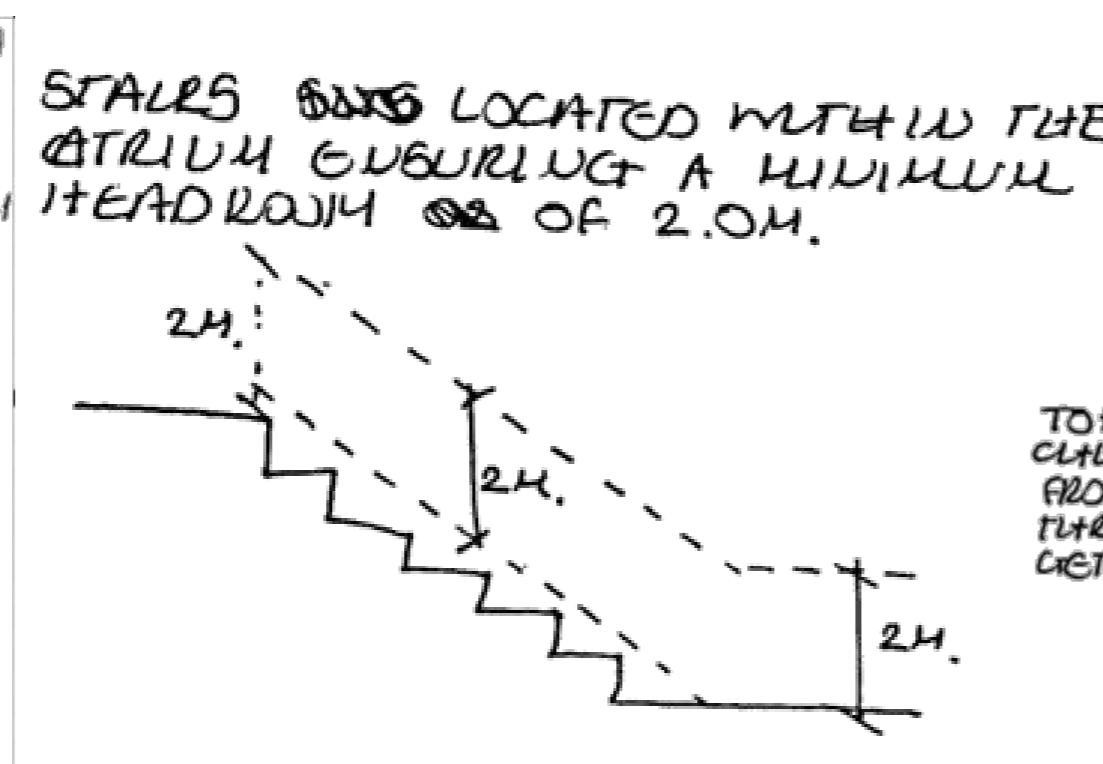 STAIRS LOCATED WITHIN THE
ATRIUM ENSURING A MINIMUM
HEADROOM OF 2.0M.
2M.
2M.
2M.